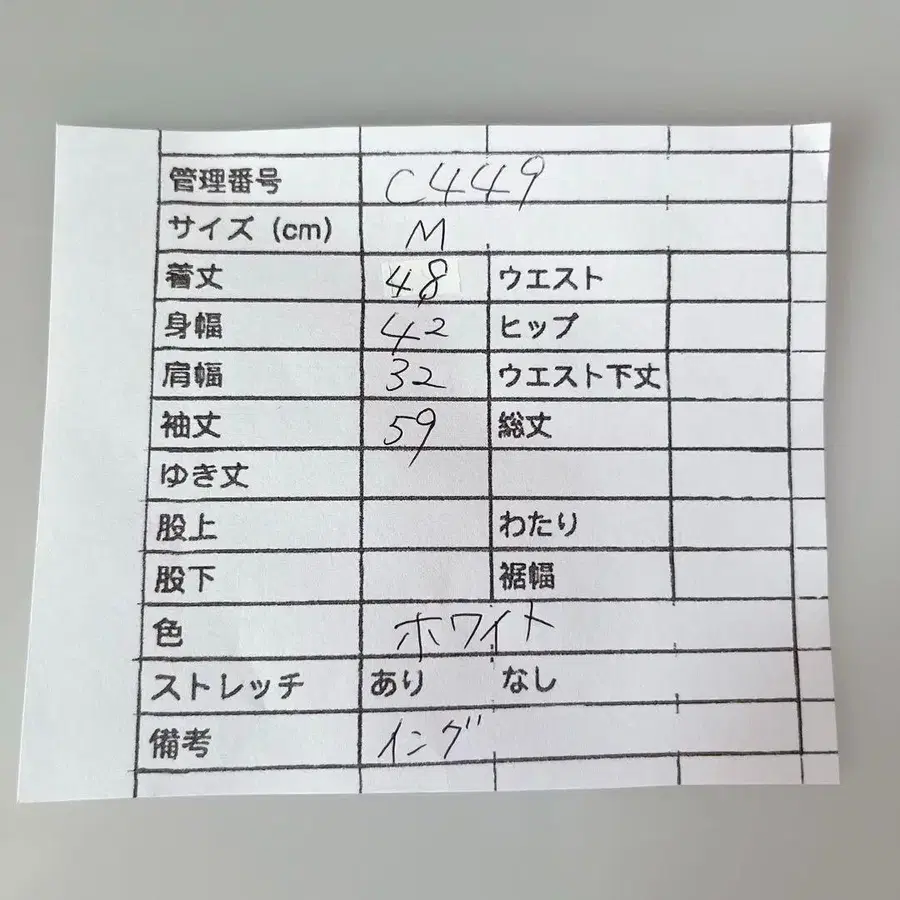 管理番号 C449
サイズ (cm) M
着丈 48 ウエスト
身幅 42 ヒップ
肩幅 32 ウエスト下丈
袖丈 59 総丈
ゆき丈
股上 わたり
股下 裾幅
色 ホワイト
ストレッチ あり なし
備考 イング